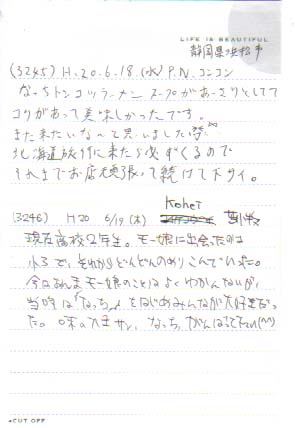 LIFE IS BEAUTIFUL
静岡県浜松市
(3245) H.20.6.18.(水) P.N.コンコン
なっちトンコツラーメン スープがあっさりとしてて
コクがあって美味しかったです。
また来たいな〜と思いました
北海道旅行に来たら必ずくるので
それまでお店頑張って続けて下サイ。
(3246) H20 6/19 (木) KoheI
現在高校2年生。モー娘に出会ったのは
小3で、それからどんどんのめりこんでいった。
今はあんまモー娘のことはよくわかんないが、
当時は「なっち」をはじめみんなが大好きだっ
た。味の大王サン、なっち、がんばって下さい(^^)
CUT OFF